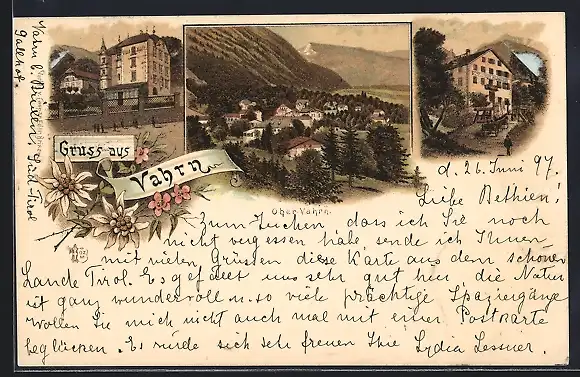 Vahrn b. Brixen Süd-Tirol
Gasthof
Gruss aus
Vahrn
Ober Vahrn.
d. 26. Juni 97.
Liebe Bethien!
Zum Zeichen, dass ich Sie noch
nicht vergessen habe, sende ich Ihnen
mit vielen Grüssen diese Karte aus dem schönen
Lande Tirol. Es gefällt uns sehr gut hier, die Natur
ist ganz wundervoll u. so viele prächtige Spaziergänge
Wollen Sie mich nicht auch mal mit einer Postkarte
beglücken. Es würde sich sehr freuen Ihre Lydia Lessner.